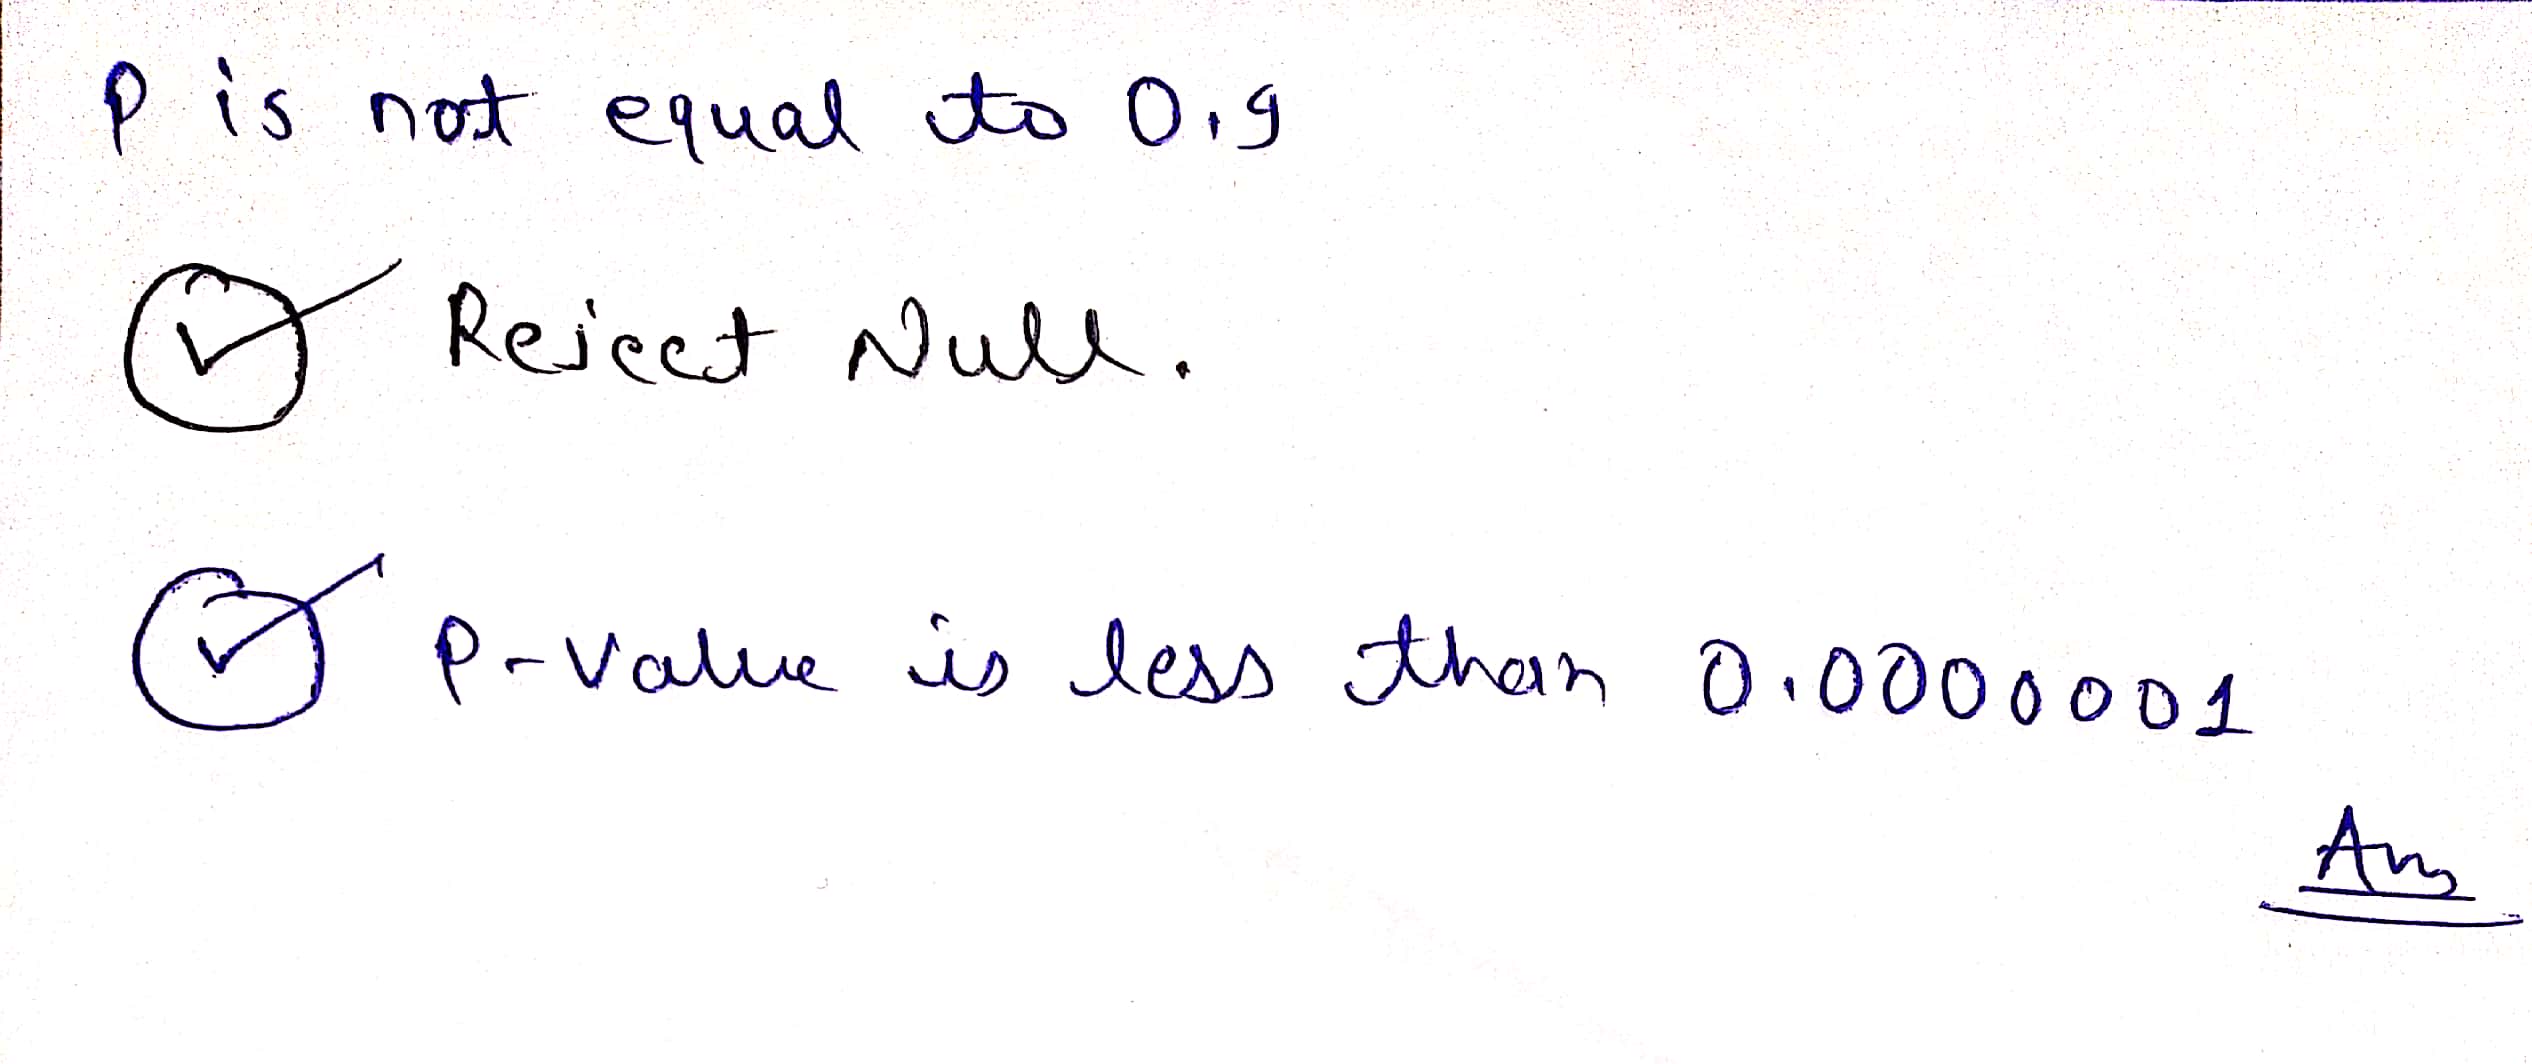 P is not equal to 0.9
Reject Null.
P-value is less than 0.0000001
Ans